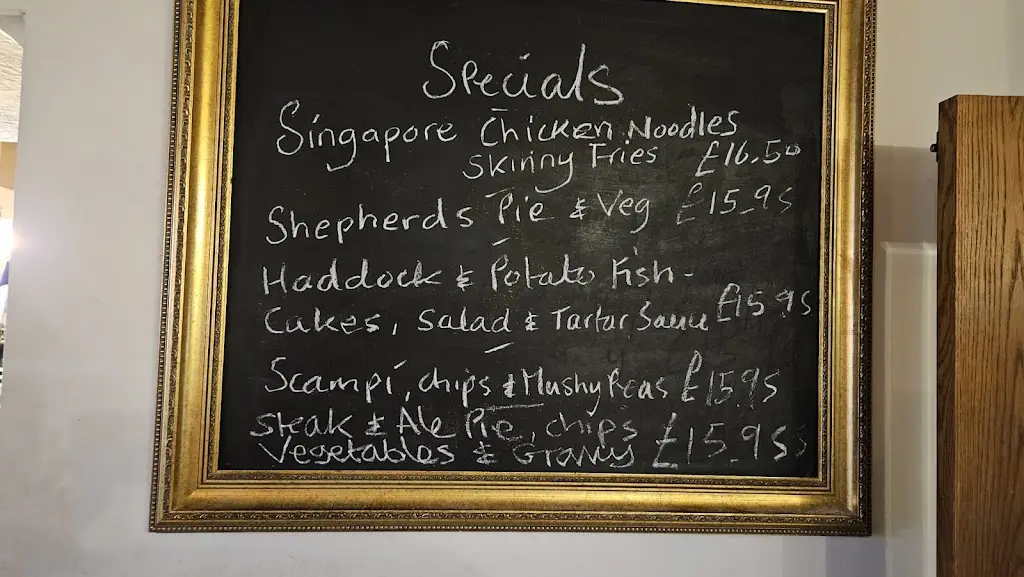 Specials
Singapore Chicken Noodles
Skinny Fries £16.50
Shepherds Pie & Veg £15.95
Haddock & Potato Fish-
Cakes, Salad & Tartar Sauce £15.95
Scampi, chips & Mushy Peas £15.95
Steak & Ale Pie, chips
Vegetables & Gravy £15.95